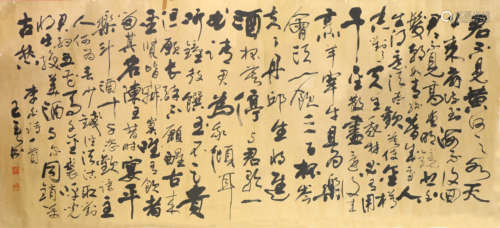 君不見黃河之水天
上來奔流到海不復回
君不見高堂明鏡悲白
髮朝如青絲暮成雪人
生得意須盡歡莫使金樽
空對月天生我材必有用
千金散盡還復來
烹羊宰牛且為樂
會須一飲三百杯岑
夫子丹丘生將進
酒杯莫停與君歌一
曲請君為我傾耳
聽鐘鼓饌玉不足貴
但願長醉不願醒古來
聖賢皆寂寞惟有飲者
留其名陳王昔時宴平
樂斗酒十千恣歡謔主
人何為言少錢徑須沽取對
君酌五花馬千金裘呼兒
將出換美酒與爾同銷萬
古愁 李白詩一首
王